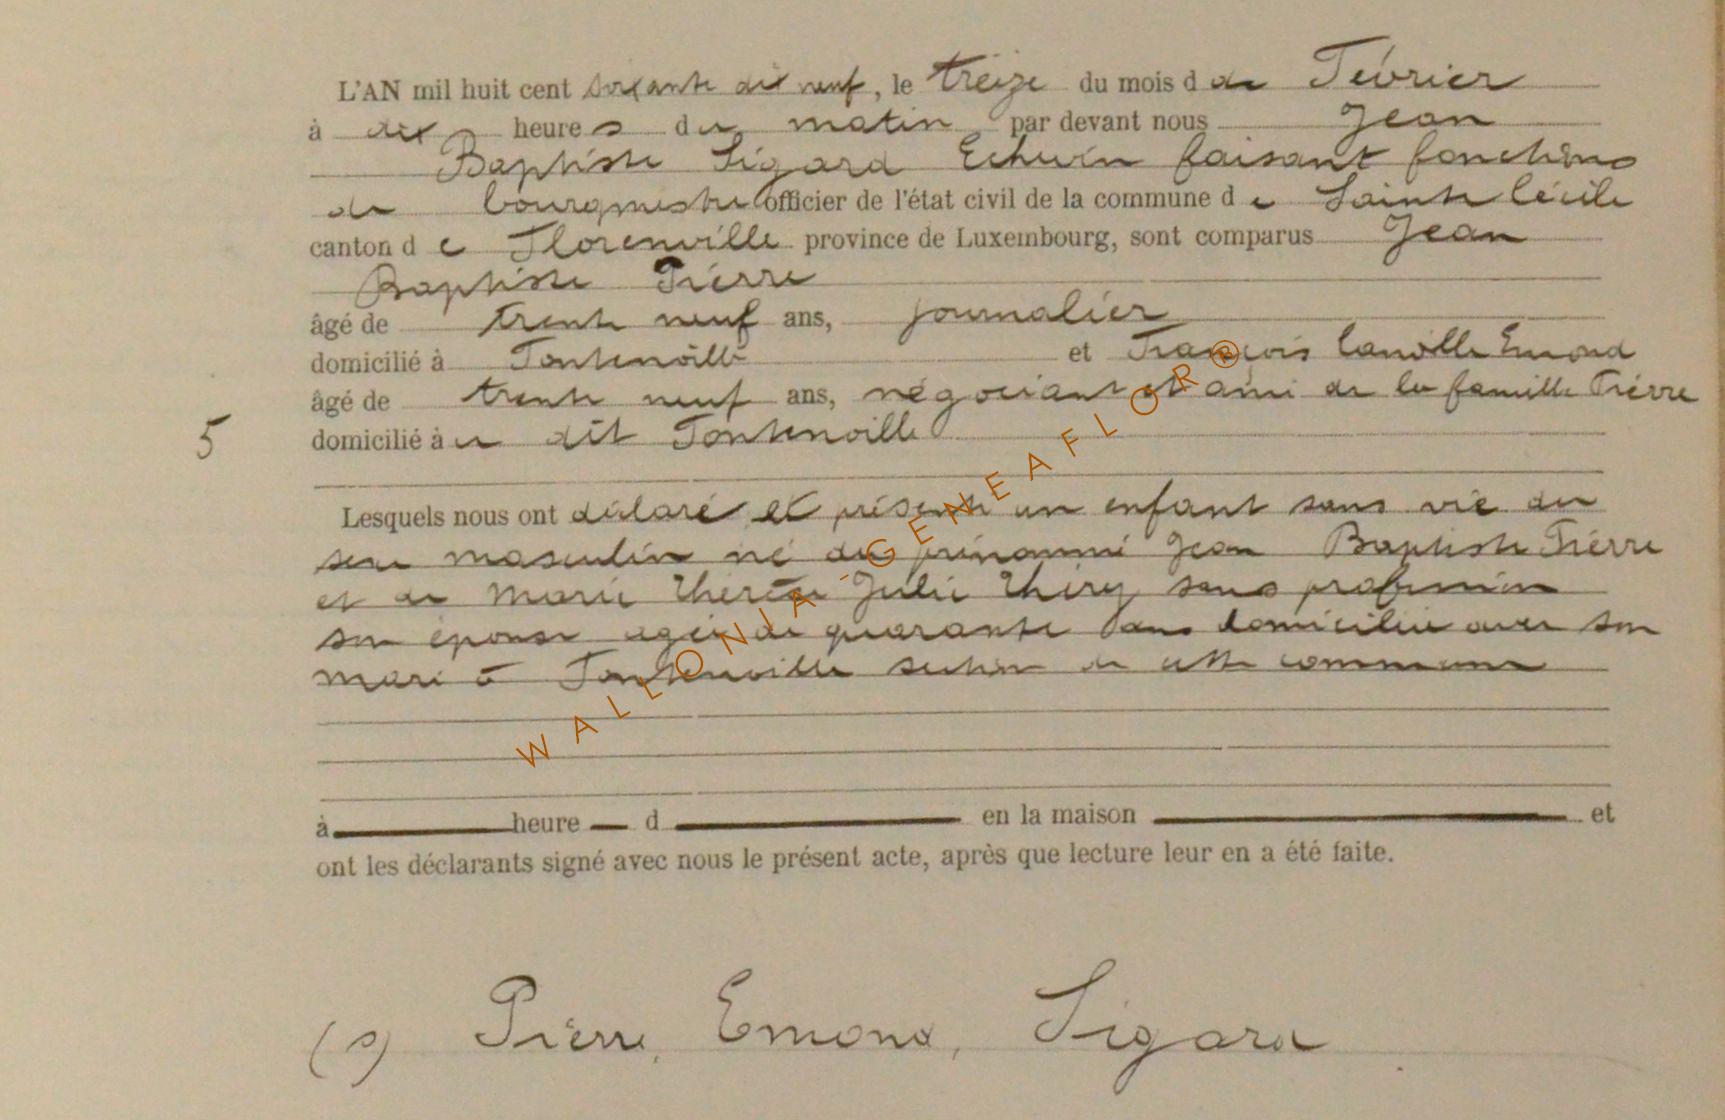 L'AN mil huit cent soixante dix neuf, le treize du mois d de Février
à dix heure s du matin par devant nous Jean
Baptiste Sigard Echevin faisant fonctions
de bourgmestre officier de l'état civil de la commune d e Sainte Cécile
canton d e Florenville province de Luxembourg, sont comparus Jean
Baptiste Pierre
âgé de trente neuf ans, journalier
domicilié à Fontenoille et François Camille Emond
âgé de trente neuf ans, négociant et ami de la famille Pierre
5 domicilié à u dit Fontenoille
Lesquels nous ont déclaré et présenté un enfant sans vie du
sexe masculin né du prénommé Jean Baptiste Pierre
et de Marie Thérèse Julie Thiry sans profession
son épouse agée de quarante ans domiciliée avec son
mari à Fontenoille section de cette commune
à heure d en la maison et
ont les déclarants signé avec nous le présent acte, après que lecture leur en a été faite.
(s) Pierre, Emond, Sigard
WALLONIA - GENEAFLOR®